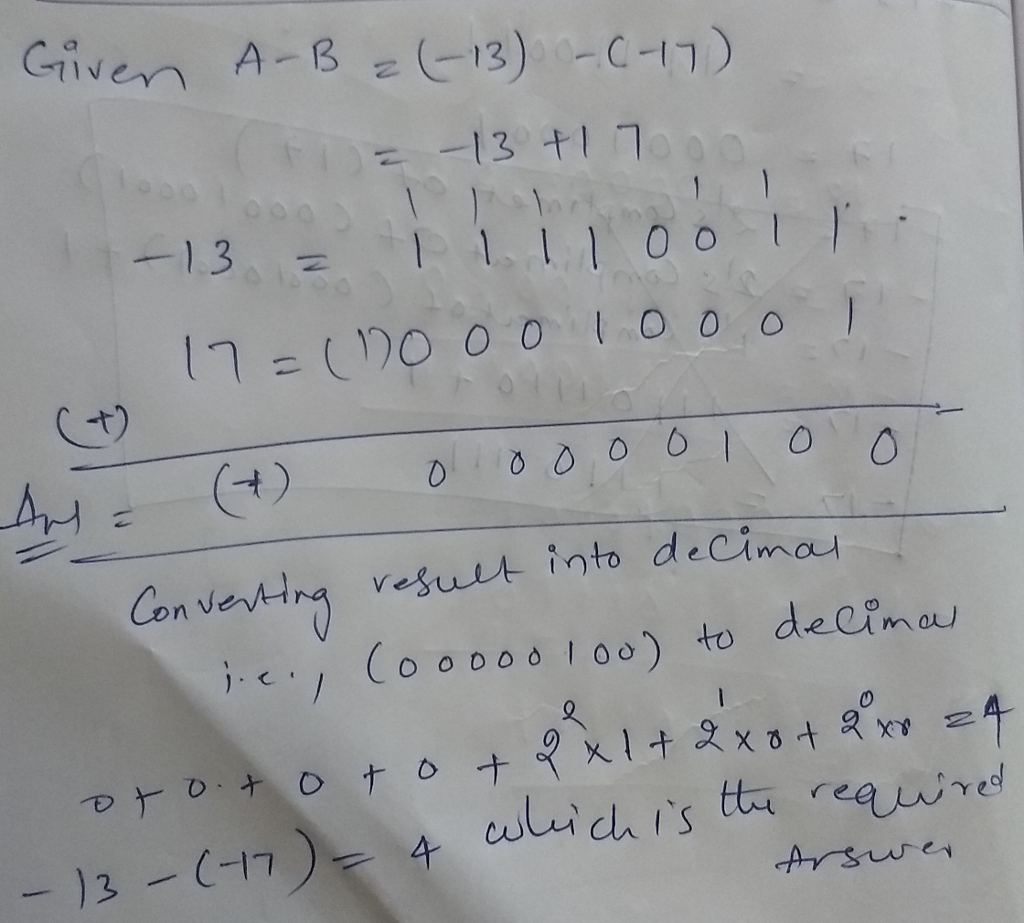 Given A-B = (-13) - (-17)
= -13 + 17
1 1 1 1 1
-13 = 1 1 1 1 0 0 1 1
17 = (1) 0 0 0 1 0 0 0 1
(+)
Ans = (+) 0 0 0 0 0 1 0 0
Converting result into decimal
i.e., (00000100) to decimal
0 + 0 + 0 + 0 + 2²×1 + 2¹×0 + 2⁰×0 = 4
-13 - (-17) = 4 which is the required
Answer